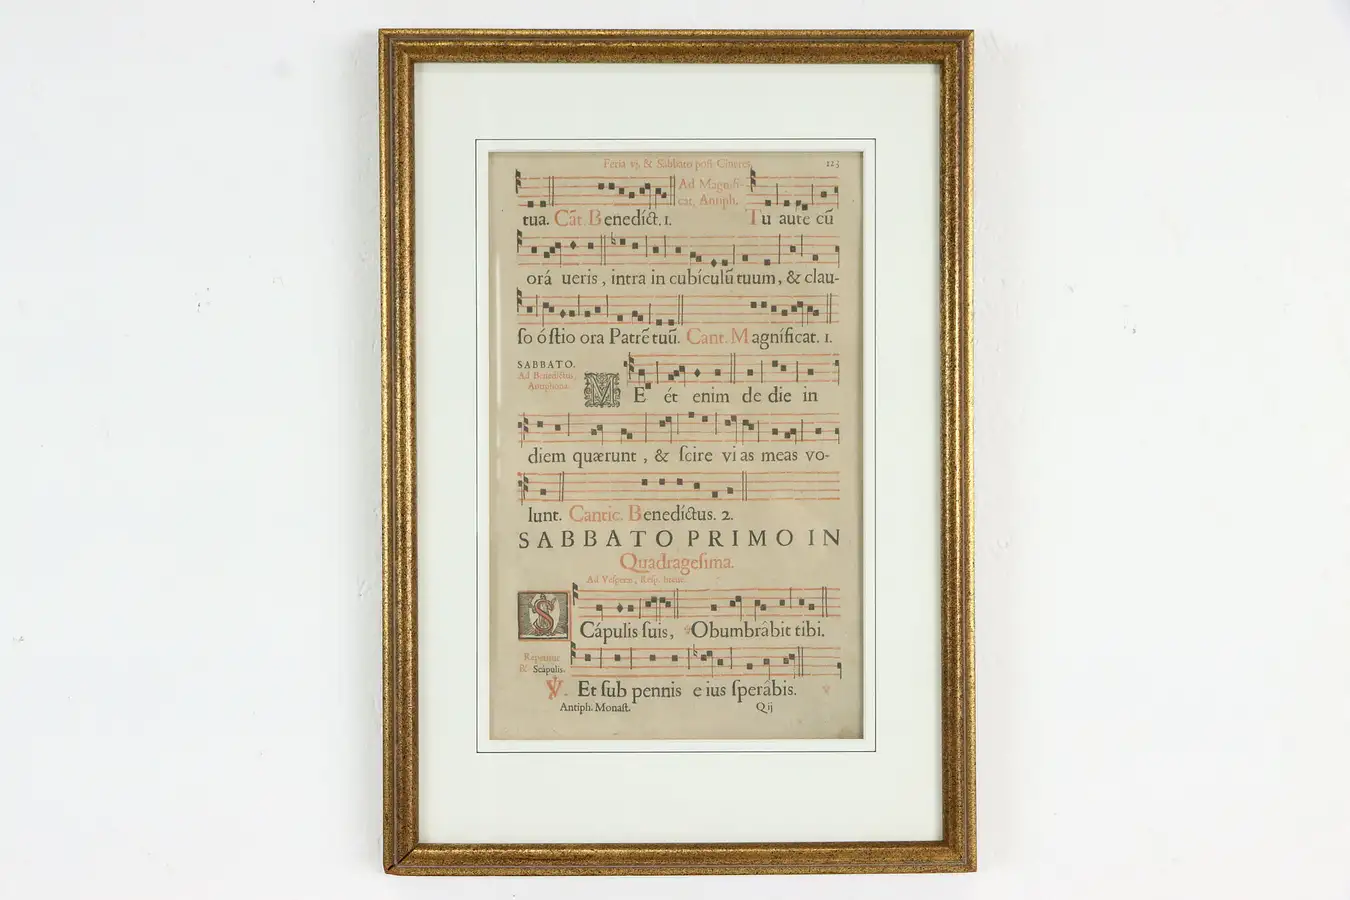 Feria vj. & Sabbato post Cineres. 123
Ad Magnifi-
cat, Antiph.
tua. Cãt. Benedíct. 1. Tu autē cū
orá ueris, intra in cubículũ tuum, & clau-
ſo óſtio ora Patrẽ tuũ. Cant. Magníficat. 1.
SABBATO.
Ad Benedictus,
Antiphona.
ME ét enim de die in
diem quærunt, & ſcire vias meas vo-
lunt. Cantic. Benedíctus. 2.
SABBATO PRIMO IN
Quadrageſima.
Ad Veſperas, Reſp. breue.
SCápulis ſuis, *Obumbrábit tibi.
Repetitur
℟. Scápulis.
℣. Et ſub pennis eius ſperábis. ℣
Antiph. Monaſt. Q ij